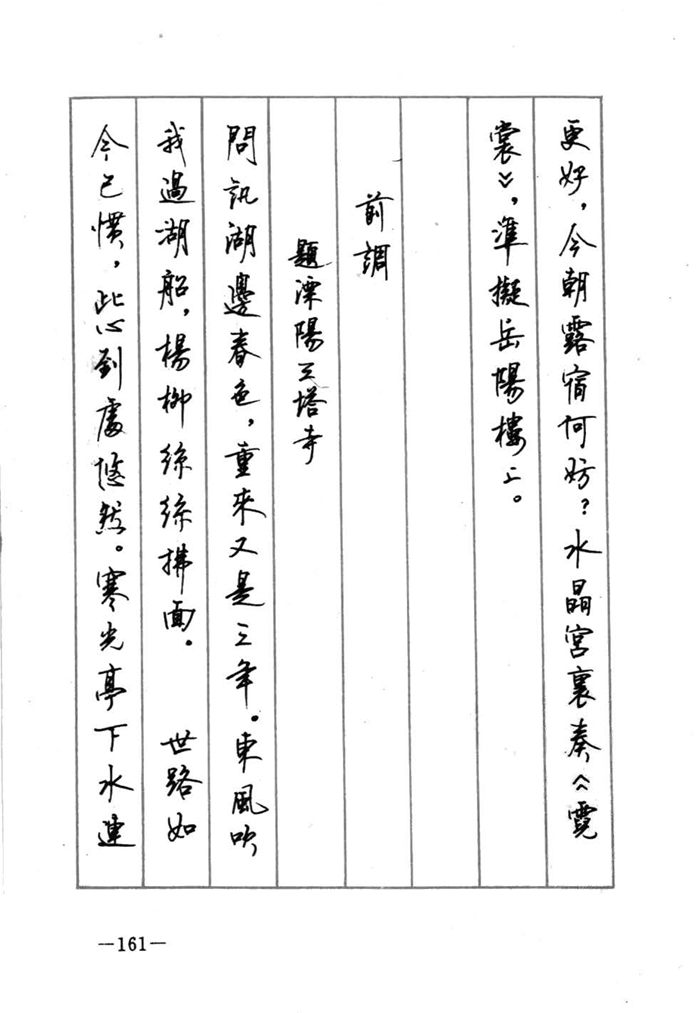 更好，今朝露宿何妨？水晶宮裏奏《霓
裳》，準擬岳陽樓上。
前調
題溧陽三塔寺
問訊湖邊春色，重來又是三年。東風吹
我過湖船，楊柳絲絲拂面。　世路如
今已慣，此心到處悠然。寒光亭下水連
—161—